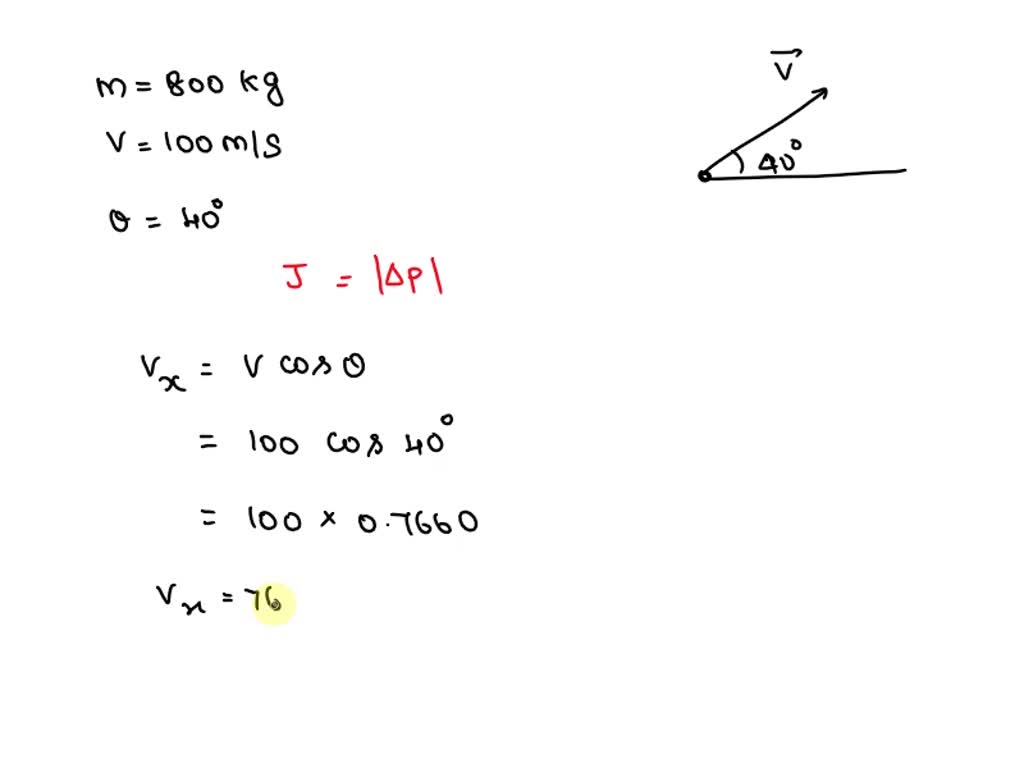 m = 800 kg
V = 100 m/s
θ = 40°
J = |Δp|
Vx = V cos θ
= 100 cos 40°
= 100 × 0.7660
Vx = 76
V
40°